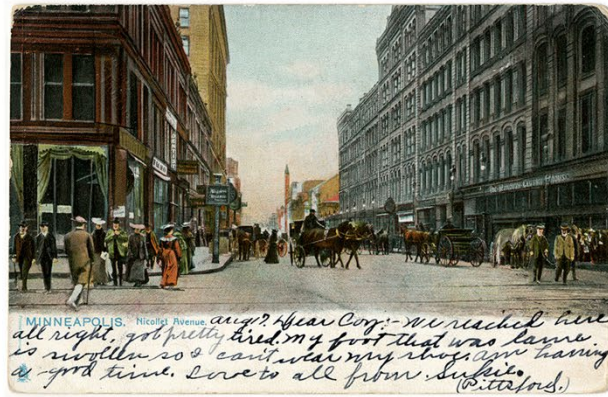 MINNEAPOLIS. Nicollet Avenue. Aug 7. Dear Coz:- We reached here
all right, got pretty tired. my foot that was lame
is swollen so I can't wear my shoe. am having
a good time. Love to all from Sukie.
(Pittsford.)